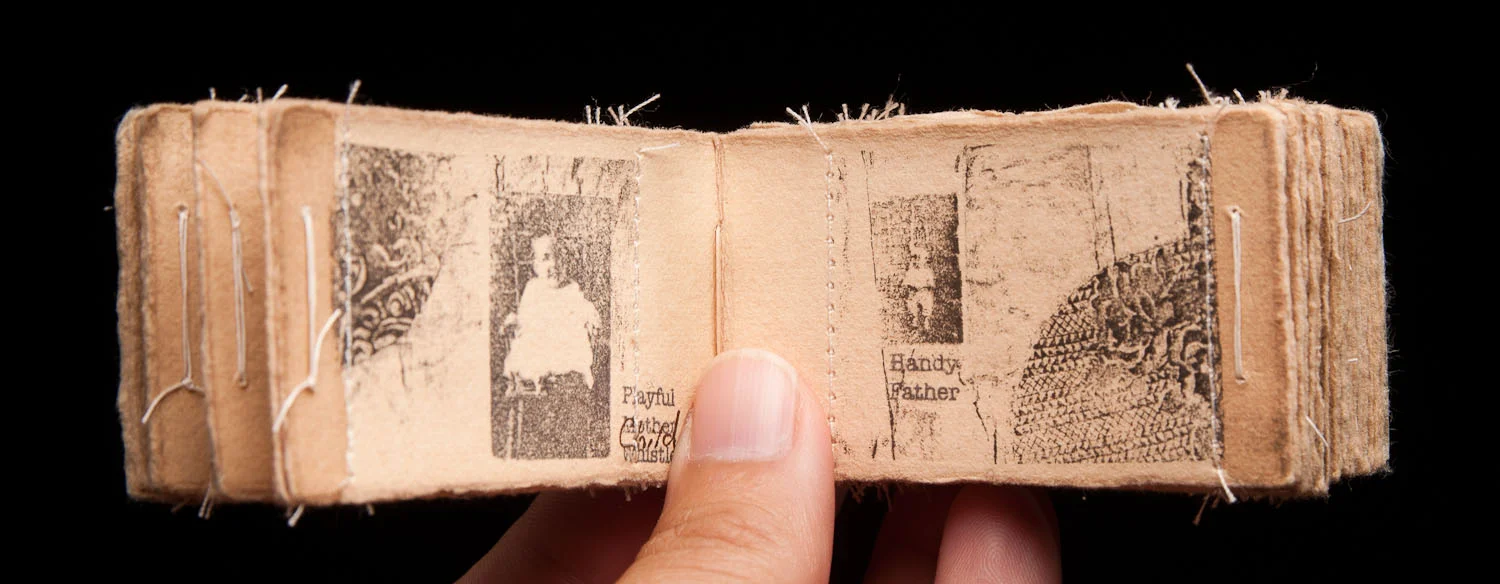 Playful
Mother
Could
Whistle
Handy
Father